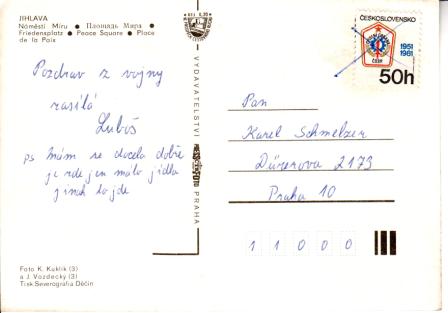 JIHLAVA
Náměstí Míru ● Площадь Мира ●
Friedensplatz ● Peace Square ● Place
de la Paix
Pozdrav z vojny
zasílá
Luboš
ps mám se docela dobře
je zde jen málo jídla
jinak to jde
Foto K. Kuklík (3)
a J. Vozdecký (3)
Tisk Severografia Děčín
VYDAVATELSTVÍ
PRAHA
ČESKOSLOVENSKO
1951
1981
50h
Pan
Karel Schmelzer
Dürerova 2173
Praha 10
11000